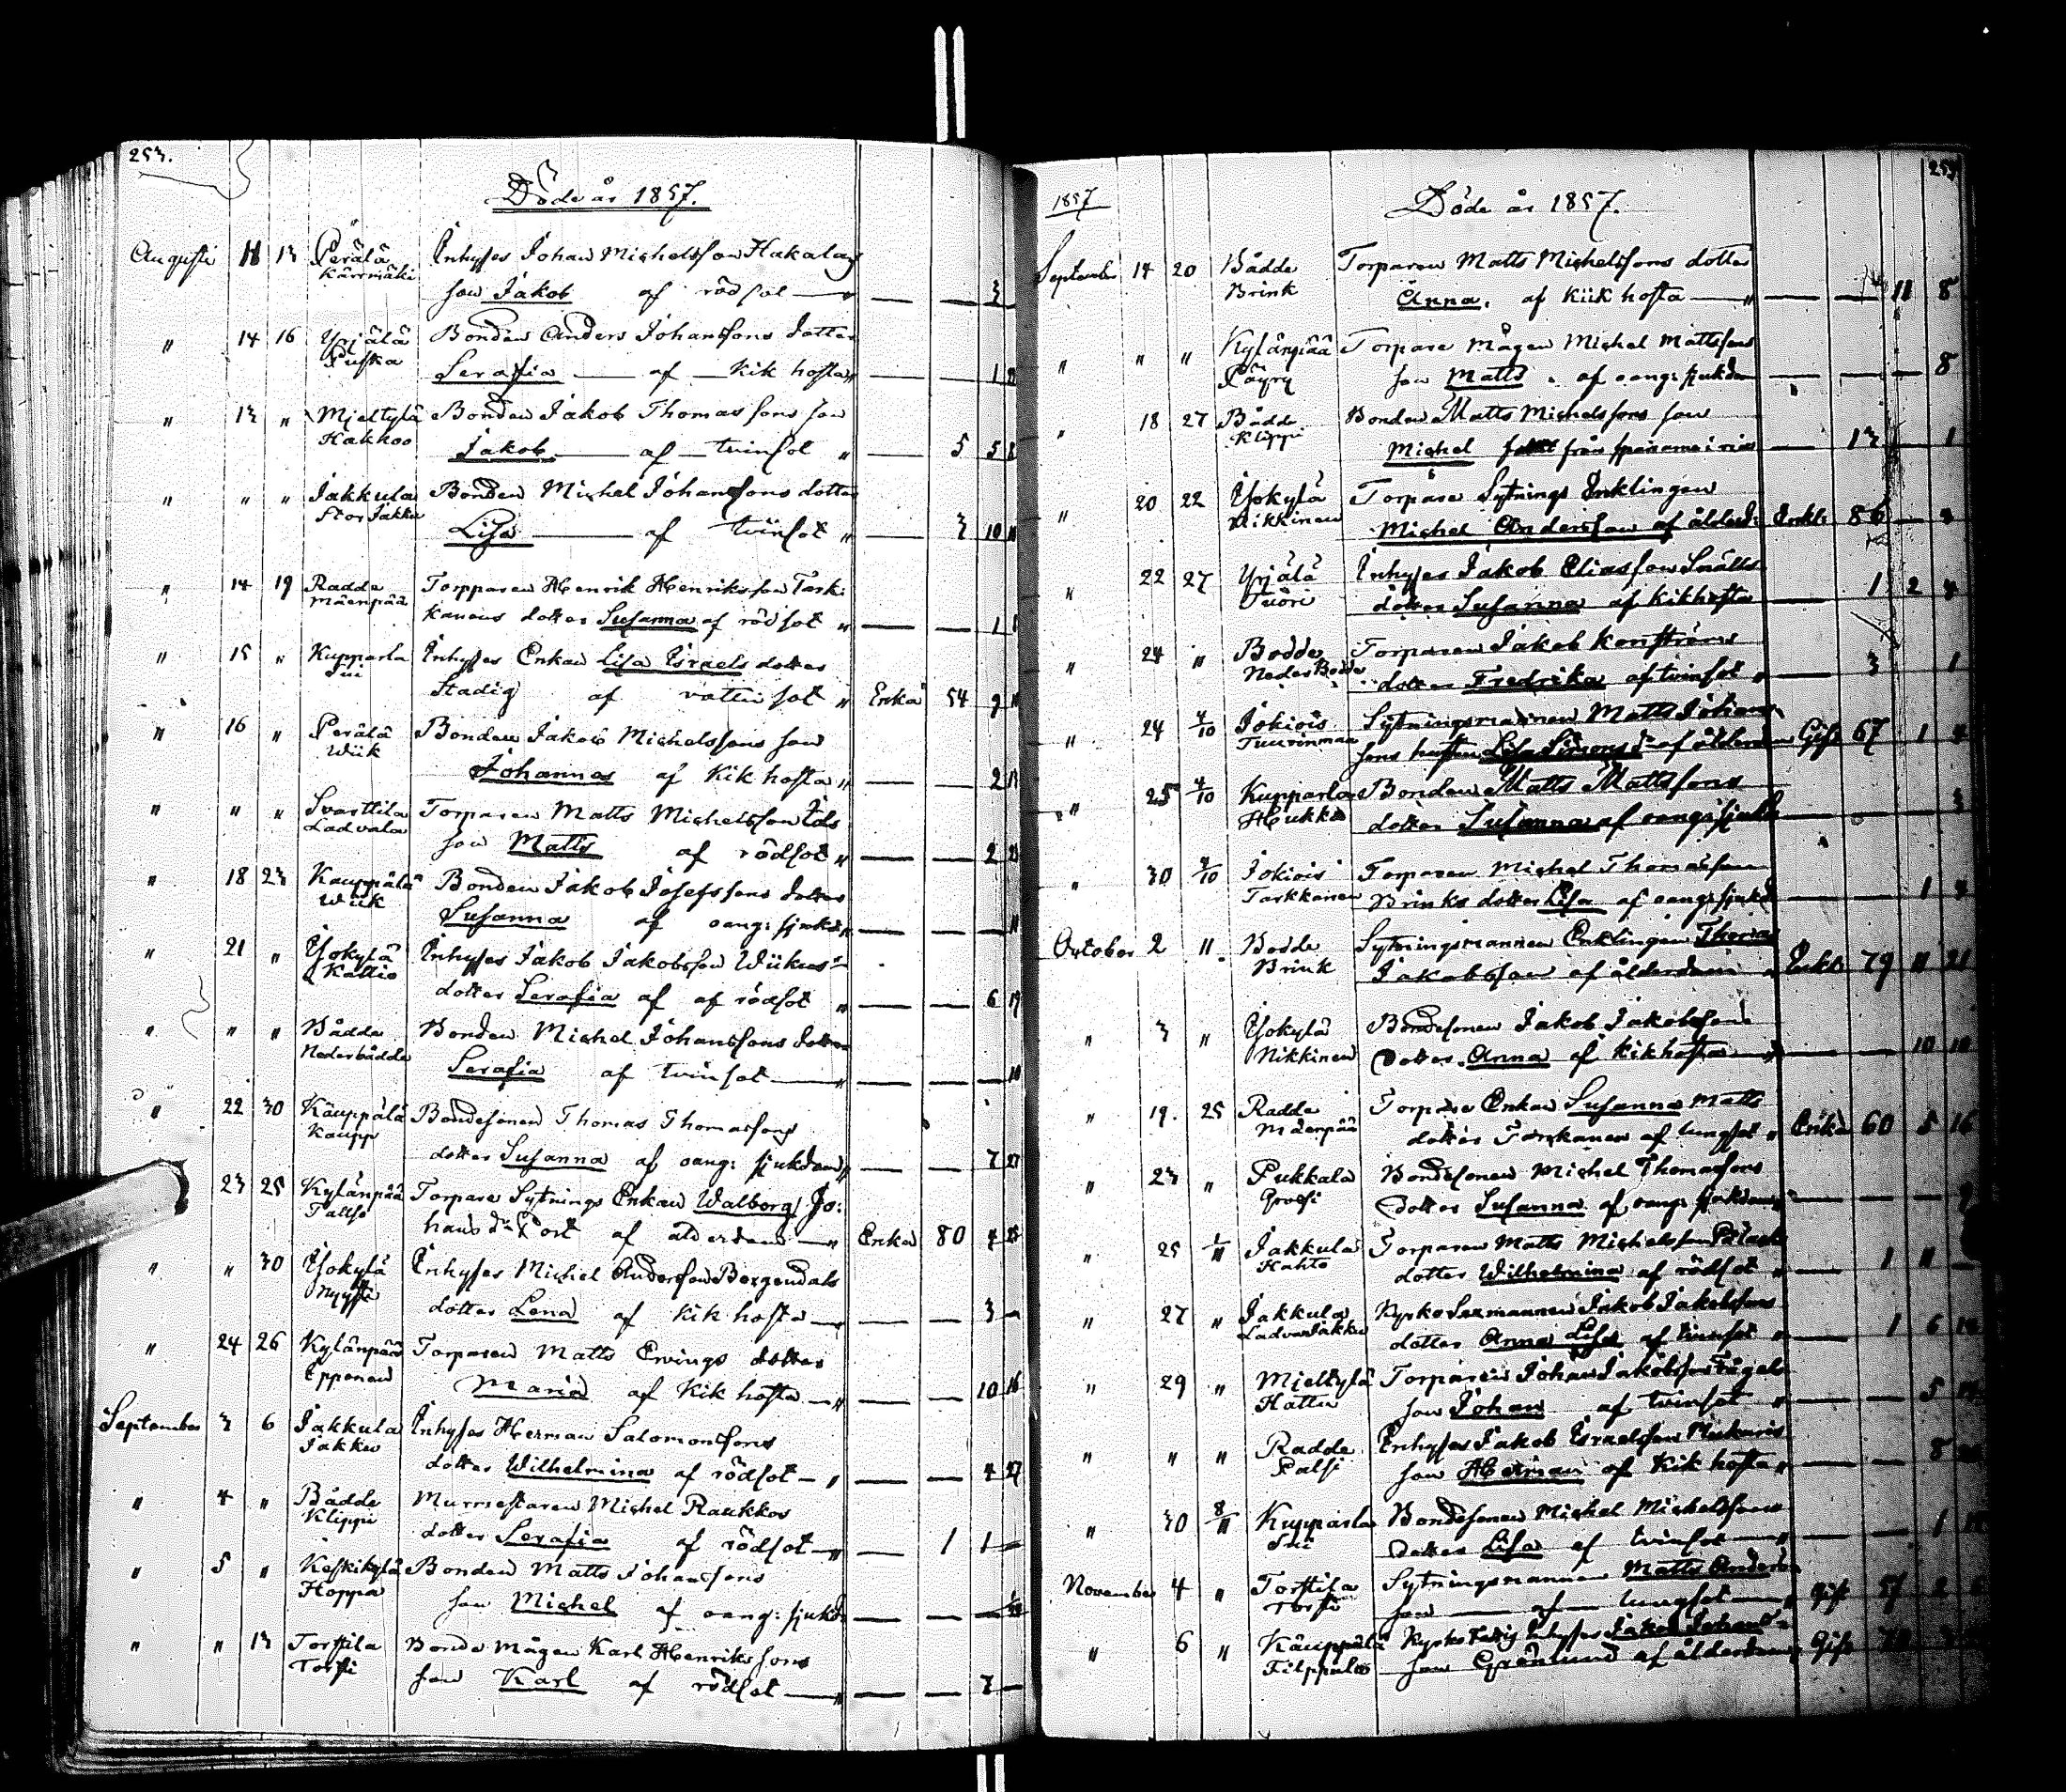 253.
Döde år 1857.
Augusti 11 13 Perälä Inhyses Johan Michelsson Hakalas
Kärrmäki son Jakob af rödsot — " — — 3
" 14 16 Yrjälä Bonden Anders Johanssons dotter
Puska Serafia — af — Kikhosta " — — 1
" 13 " Mieltylä Bonden Jakob Thomassons son
Hakkoo Jakob — af — tvinsot " — 5 5
" " " Jakkula Bonden Michel Johanssons dotter
Stor Jakku Lisa — af tvinsot " — 3 10
" 14 19 Radde Torpparen Henrik Henriksson Tark:
Mäenpää kanens dotter Susanna af rödsot " — — 1
" 15 " Kupparla Inhyses Enkan Lisa Israels dotter
Stadig af vattusot " Enka 54 9
" 16 " Perälä Bonden Jakob Michelssons son
Wiik Johannes af Kikhosta " — — 2
" " " Svarttila Torparen Matts Michelsson
Ladvala son Matts af rödsot " — — 2
" 18 23 Kauppälä Bonden Jakob Josefssons dotter
Wiik Susanna af oang: sjukd " — — —
" 21 " Yrjokylä Inhyses Jakob Jakobsson
Kattio dotter Serafia af af rödsot " — — 6 19
" " " Bådde Bonden Michel Johanssons dotter
Nederbådde Serafia af tvinsot — " — — — 10
" 22 30 Käuppälä Bondesonen Thomas Thomassons
Kaupp dotter Susanna af oang: sjukdom " — — 7 27
23 25 Kylänpää Torpare Sytnings Enkan Walborg Jo:
hans dr af ålderdom — " Enka 80 4 25
" " 30 Yokylä Inhyses Michel Andersson Bergendals
dotter Lena af Kikhosta — " — — 3 —
" 24 26 Kylänpää Torparen Matts Ervings dotter
Epponen Maria af Kikhosta — " — — 10 16
September 3 6 Jakkula Inhyses Herman Salomonssons
Jakku dotter Wilhelmina af rödsot — " — — 4 27
" 4 " Bådde Murmestaren Michel Raukkos
Klippi dotter Serafia af rödsot — " — 1 1 —
" 5 " Keskikylä Bonden Matts Johanssons
Hoppa son Michel af oang: sjukd — — —
" " 13 Torstila Bonde Mågen Karl Henrikssons
Torsti son Karl af rödsot — " — — 7 —
1857
Döde år 1857.
September 14 20 Bådde Torparen Matts Michelssons dotter
Brink Anna. af Kikhosta — " — — 11 8
" " " Kylänpää Torpare Mågen Michel Mattssons
Päyry son Matts. af oang: sjukdom — — — 8
" 18 27 Bådde Bonden Matts Michelssons son
Klippi Michel från sparrarne i rian — 13 — 1
" 20 22 Yokylä Torpare Sytnings Enklingen
Nikkinen Michel Andersson af ålderd: Enkl: 86 — 3
" 22 27 Yrjälä Inhyses Jakob Eliasson
Tuori dotter Susanna af Kikhosta — 1 2 4
" 24 " Bodde Torparen Jakob
Neder Bodde dotter Fredrika af tvinsot " — 3 — 1
" 24 4/10 Jokiois Sytningsmannen Matts Johans
Tuurinmaa sons hustru Lisa Simons dr af ålderdom Gift 67 1 4
" 25 4/10 Kupparla Bonden Matts Mattssons
Hukka dotter Susanna af oang: sjukd — — — 3
" 30 4/10 Jokiois Torparen Michel Thomasson
Tarkkanen Brinks dotter Lisa af oang: sjukd — — 1 4
October 2 11. Bodde Sytningsmannen Enklingen Thomas
Brink Jakobsson af ålderdom " Enkl: 79 11 21
" 3 " Yokylä Bondesonen Jakob Jakobssons
Nikkinen dotter Anna af Kikhosta — " — — 10 10
" 19. 25 Radde Torpare Enkan Susanna Matts
Mäenpää dotter Tarkkanen af lungsot " Enka 60 5 16
" 23 " Pukkala Bondesonen Michel Thomassons
dotter Susanna af oang: sjukdom " — — — 9
" 25 1/11 Jakkula Torparen Matts Michelsson
Kahto dotter Wilhelmina af rödsot " — 1 11 —
" 27 " Jakkula Kyrko Sexmannen Jakob Jakobssons
Ladvan Jakku dotter Anna Lisa af tvinsot " — 1 6
" 29 " Mieltylä Torparen Johan Jakobsson
Hattu son Johan af tvinsot " — — 5
" " " Radde Inhyses Jakob Israelsson
Palsi son Herman af Kikhosta " — — 8
" 30 8/11 Kupparla Bondesonen Michel Michelssons
dotter Lisa af tvinsot — " — — 1
November 4 " Torstila Sytningsmannen Matts Anders
Torsti son — af — lungsot — " Gift 57 2
" 6 " Käuppälä Kyrko Inhyses Jakob Johans
Filppula son Grönlund af ålderdom " Gift